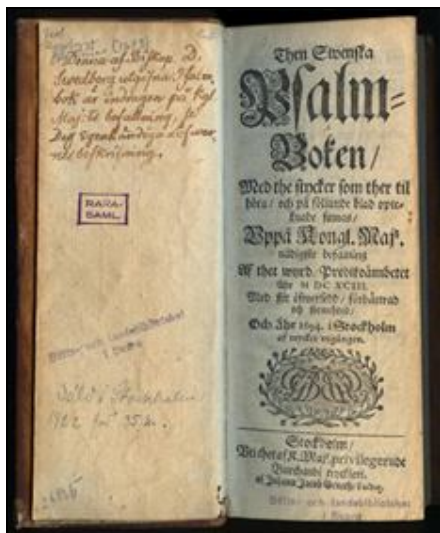 Denna af Biskop D.
Svedberg utgifna Psalm-
bok är indragen på Kgl.
Maj:ts befallning, se
RARA-
SAML.
Stifts- och landsbiblioteket
Såld i Stockholm
1922 för 35 kr.
Then Swenska
Psalm-
Boken/
Med the stycker som ther til
höra/ och på följande blad opte-
knade finnas/
Uppå Kongl. Maj:
nådigste befalning
Af thet wyrd. Predikoämbetet
Åhr M DC XCIII.
Med flit öfwersedd/ förbättrad
och förmehrat/
Och Åhr 1694. i Stockholm
af trycket utgången.
Stockholm/
Uti thet af K. Maj: privilegierade
Burchardi tryckeri,
af Johann Jacob Genath
Stifts- och landsbiblioteket
i Skara